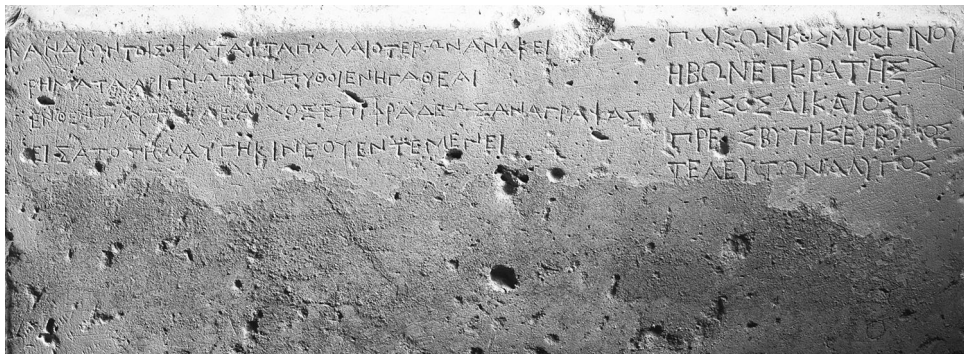 ΑΝΔΡΩΝΤΟΙΣΟΦΑΤΑΥΤΑΠΑΛΑΙΟΤΕΡΩΝΑΝΑΚΕΙ Ι
ΡΗΜΑΤΑΑΡΙΓΝΩΤΩΝΠΥΘΟΙΕΝΗΓΑΘΕΑΙ
ΕΝΘΕΝΤΑΥΤΑΚΛΕΑΡΧΟΣΕΠΙΦΡΑΔΕΩΣΑΝΑΓΡΑΨΑΣ
ΕΙΣΑΤΟΤΗΛΑΥΓΗΚΙΝΕΟΥΕΝΤΕΜΕΝΕΙ
ΠΑΙΣΩΝΚΟΣΜΙΟΣΓΙΝΟΥ
ΗΒΩΝΕΓΚΡΑΤΗΣ
ΜΕΣΟΣΔΙΚΑΙΟΣ
ΠΡΕΣΒΥΤΗΣΕΥΒΟΥΛΟΣ
ΤΕΛΕΥΤΩΝΑΛΥΠΟΣ